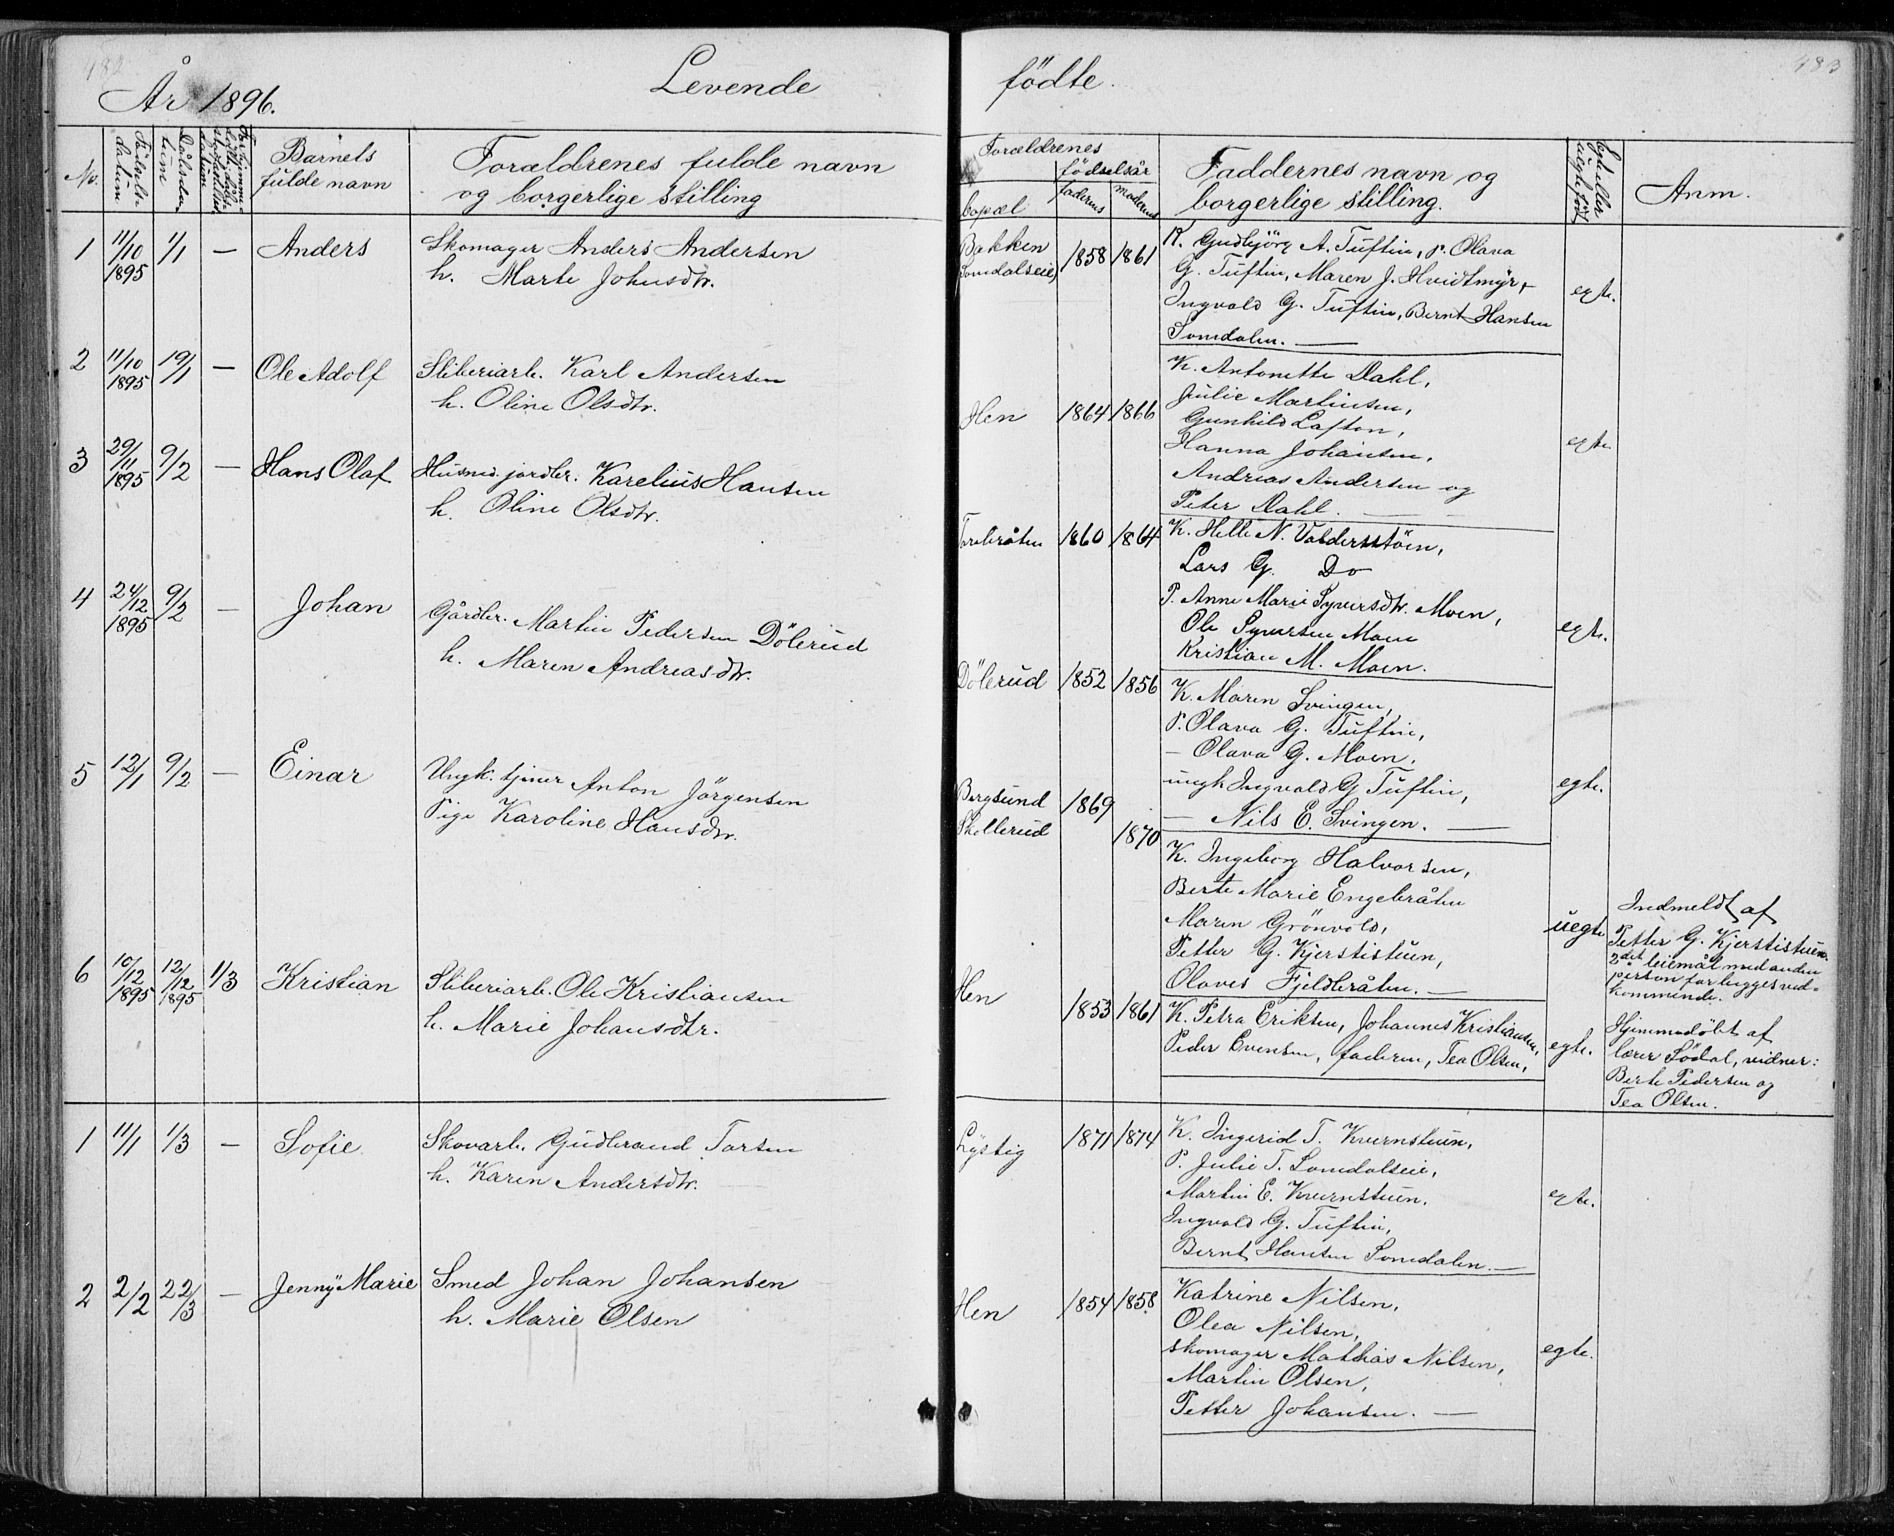 482
483
År 1896.
Levende
fødte.
No.
Fødselsdatum
Dåbsdatum
Barnets
fulde navn
Forældrenes fulde navn
og borgerlige stilling
Forældrenes
fødselsår
bopæl
faderens
moderens
Faddernes navn og
borgerlige stilling.
Egte eller
uegte født
Anm.
1
11/10
1895
1/1
—
Anders
Skomager Anders Andersen
h. Marte Johnsdtr.
Bakken
Somdalseie
1858
1861
K. Gudbjörg A. Tuftin, P. Olava
G. Tuftin, Maren J. Hvidtmyr,
Ingvald G. Tuftin, Bernt Hansen
Somdalen. —
egte.
2
11/10
1895
19/1
—
Ole Adolf
Sliberiarb. Karl Andersen
h. Oline Olsdtr.
Hen
1864
1866
K. Antonette Dahl,
Julie Martinsen,
Gunhild Lafton,
Hanna Johansen,
Andreas Andersen og
Peter Dahl. —
egte.
3
29/11
1895
9/2
—
Hans Olaf
Husmd. jordbr. Karelius Hansen
h. Oline Olsdtr.
Torebråten
1860
1864
K. Helle N. Valdersstöen,
Lars G. Do
P. Anne Marie Syversdtr. Moen,
Ole Syversen Moen
Kristian M. Moen.
egte.
4
24/12
1895
9/2
—
Johan
Gårdbr. Martin Pedersen Dölerud
h. Maren Andreasdtr.
Dölerud
1852
1856
K. Maren Svingen,
P. Olava G. Tuftin,
— Olava G. Moen,
ungk Ingvald G Tuftin,
— Nils E. Svingen. —
egte.
5
12/1
9/2
—
Einar
Ungk. tjener Anton Jörgensen
Pige Karoline Hansdtr.
Bergsund
Skollerud
1869
1870
K. Ingeborg Halvorsen,
Berte Marie Engebråten
Maren Grönvold,
Petter G. Kjerstistuen,
Olaves Fjeldbråten. —
uegte
Indmeldt af
Petter G. Kjerstistuen.
2det leiemål med anden
person forligges ved-
kommende.
6
10/12
1895
12/12
1895
1/3
Kristian
Sliberiarb. Ole Kristiansen
h. Marie Johansdtr.
Hen
1853
1861
K. Petra Eriksen, Johannes Kristiansen,
Peder Evensen, faderen, Tea Olsen,
egte.
Hjemmedöbt af
lærer Södal, vidner:
Berte Pedersen og
Tea Olsen.
1
11/1
1/3
—
Sofie
Skovarb. Gudbrand Torsen
h. Karen Andersdtr.
Lystig
1871
1874
K. Ingerid T. Kvernstuen,
P. Julie T. Somdalseie,
Martin E. Kvernstuen.
Ingvald G. Tuftin,
Bernt Hansen Somdalen. —
egte.
2
2/2
22/3
—
Jenny Marie
Smed Johan Johansen
h. Marie Olsen
Hen
1854
1858
Katrine Nilsen,
Olea Nilsen,
skomager Mathias Nilsen,
Martin Olsen,
Petter Johansen. —
egte.